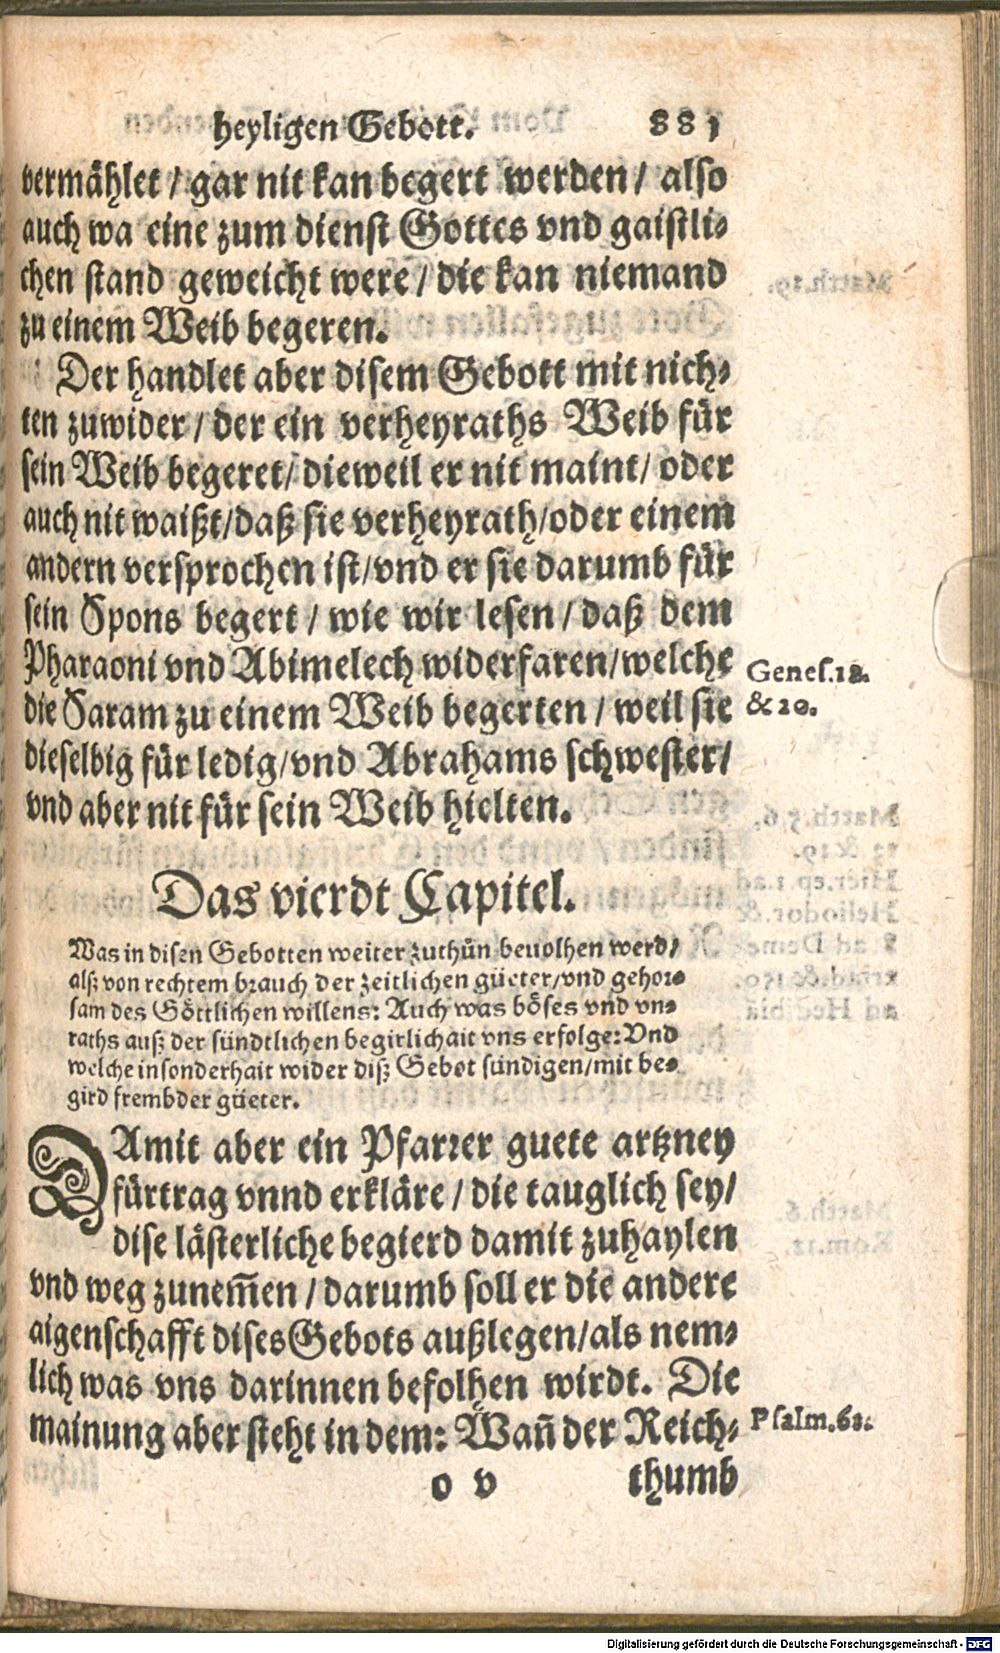 heyligen Gebott. 881
vermählet / gar nit kan begert werden / also
auch wa eine zum dienst Gottes vnd gaistli⸗
chen stand geweicht were / die kan niemand
zu einem Weib begeren.
Der handlet aber disem Gebott mit nich⸗
ten zuwider / der ein verheyraths Weib für
sein Weib begeret / dieweil er nit maint / oder
auch nit waißt / daß sie verheyrath / oder einem
andern versprochen ist / vnd er sie darumb für
sein Spons begert / wie wir lesen / daß dem
Pharaoni vnd Abimelech widerfaren / welche
Genes.12.
die Saram zu einem Weib begerten / weil sie
& 20.
dieselbig für ledig / vnd Abrahams schwester /
vnd aber nit für sein Weib hielten.
Das vierdt Capitel.
Was in disen Gebotten weiter zuthůn beuolhen werd /
alß von rechtem brauch der zeitlichen güeter / vnd gehor⸗
sam des Göttlichen willens: Auch was böses vnd vn⸗
raths auß der sündtlichen begirlichait vns erfolge: Vnd
welche insonderhait wider diß Gebot sündigen / mit be⸗
gird frembder güeter.
DAmit aber ein Pfarrer guete artzney
fürtrag vnnd erkläre / die tauglich sey /
dise lästerliche begierd damit zuhaylen
vnd weg zunem̄en / darumb soll er die andere
aigenschafft dises Gebots außlegen / als nem⸗
lich was vns darinnen befolhen wirdt. Die
mainung aber steht in dem: Wañ der Reich⸗
Psalm.61.
o v thumb
Digitalisierung gefördert durch die Deutsche Forschungsgemeinschaft - DFG